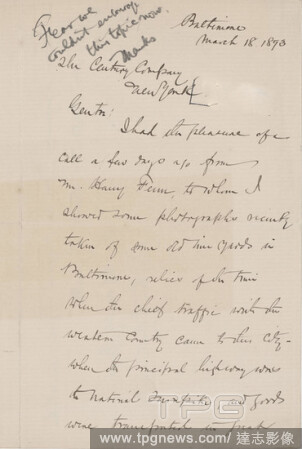 Fear we
couldn't enlarge
this topic now.
Marks
Baltimore
March 18, 1893
The Century Company
New York
Gents:
I had the pleasure of a
call a few days ago from
Mr. Harry Fenn, to whom I
showed some photographs recently
taken of some old inn yards in
Baltimore, relics of the time
when the chief traffic with the
western country came to this City-
when the principal highway was
the National Turnpike and goods
were transported in great
TPG
www.tpgnews.com / 達志影像